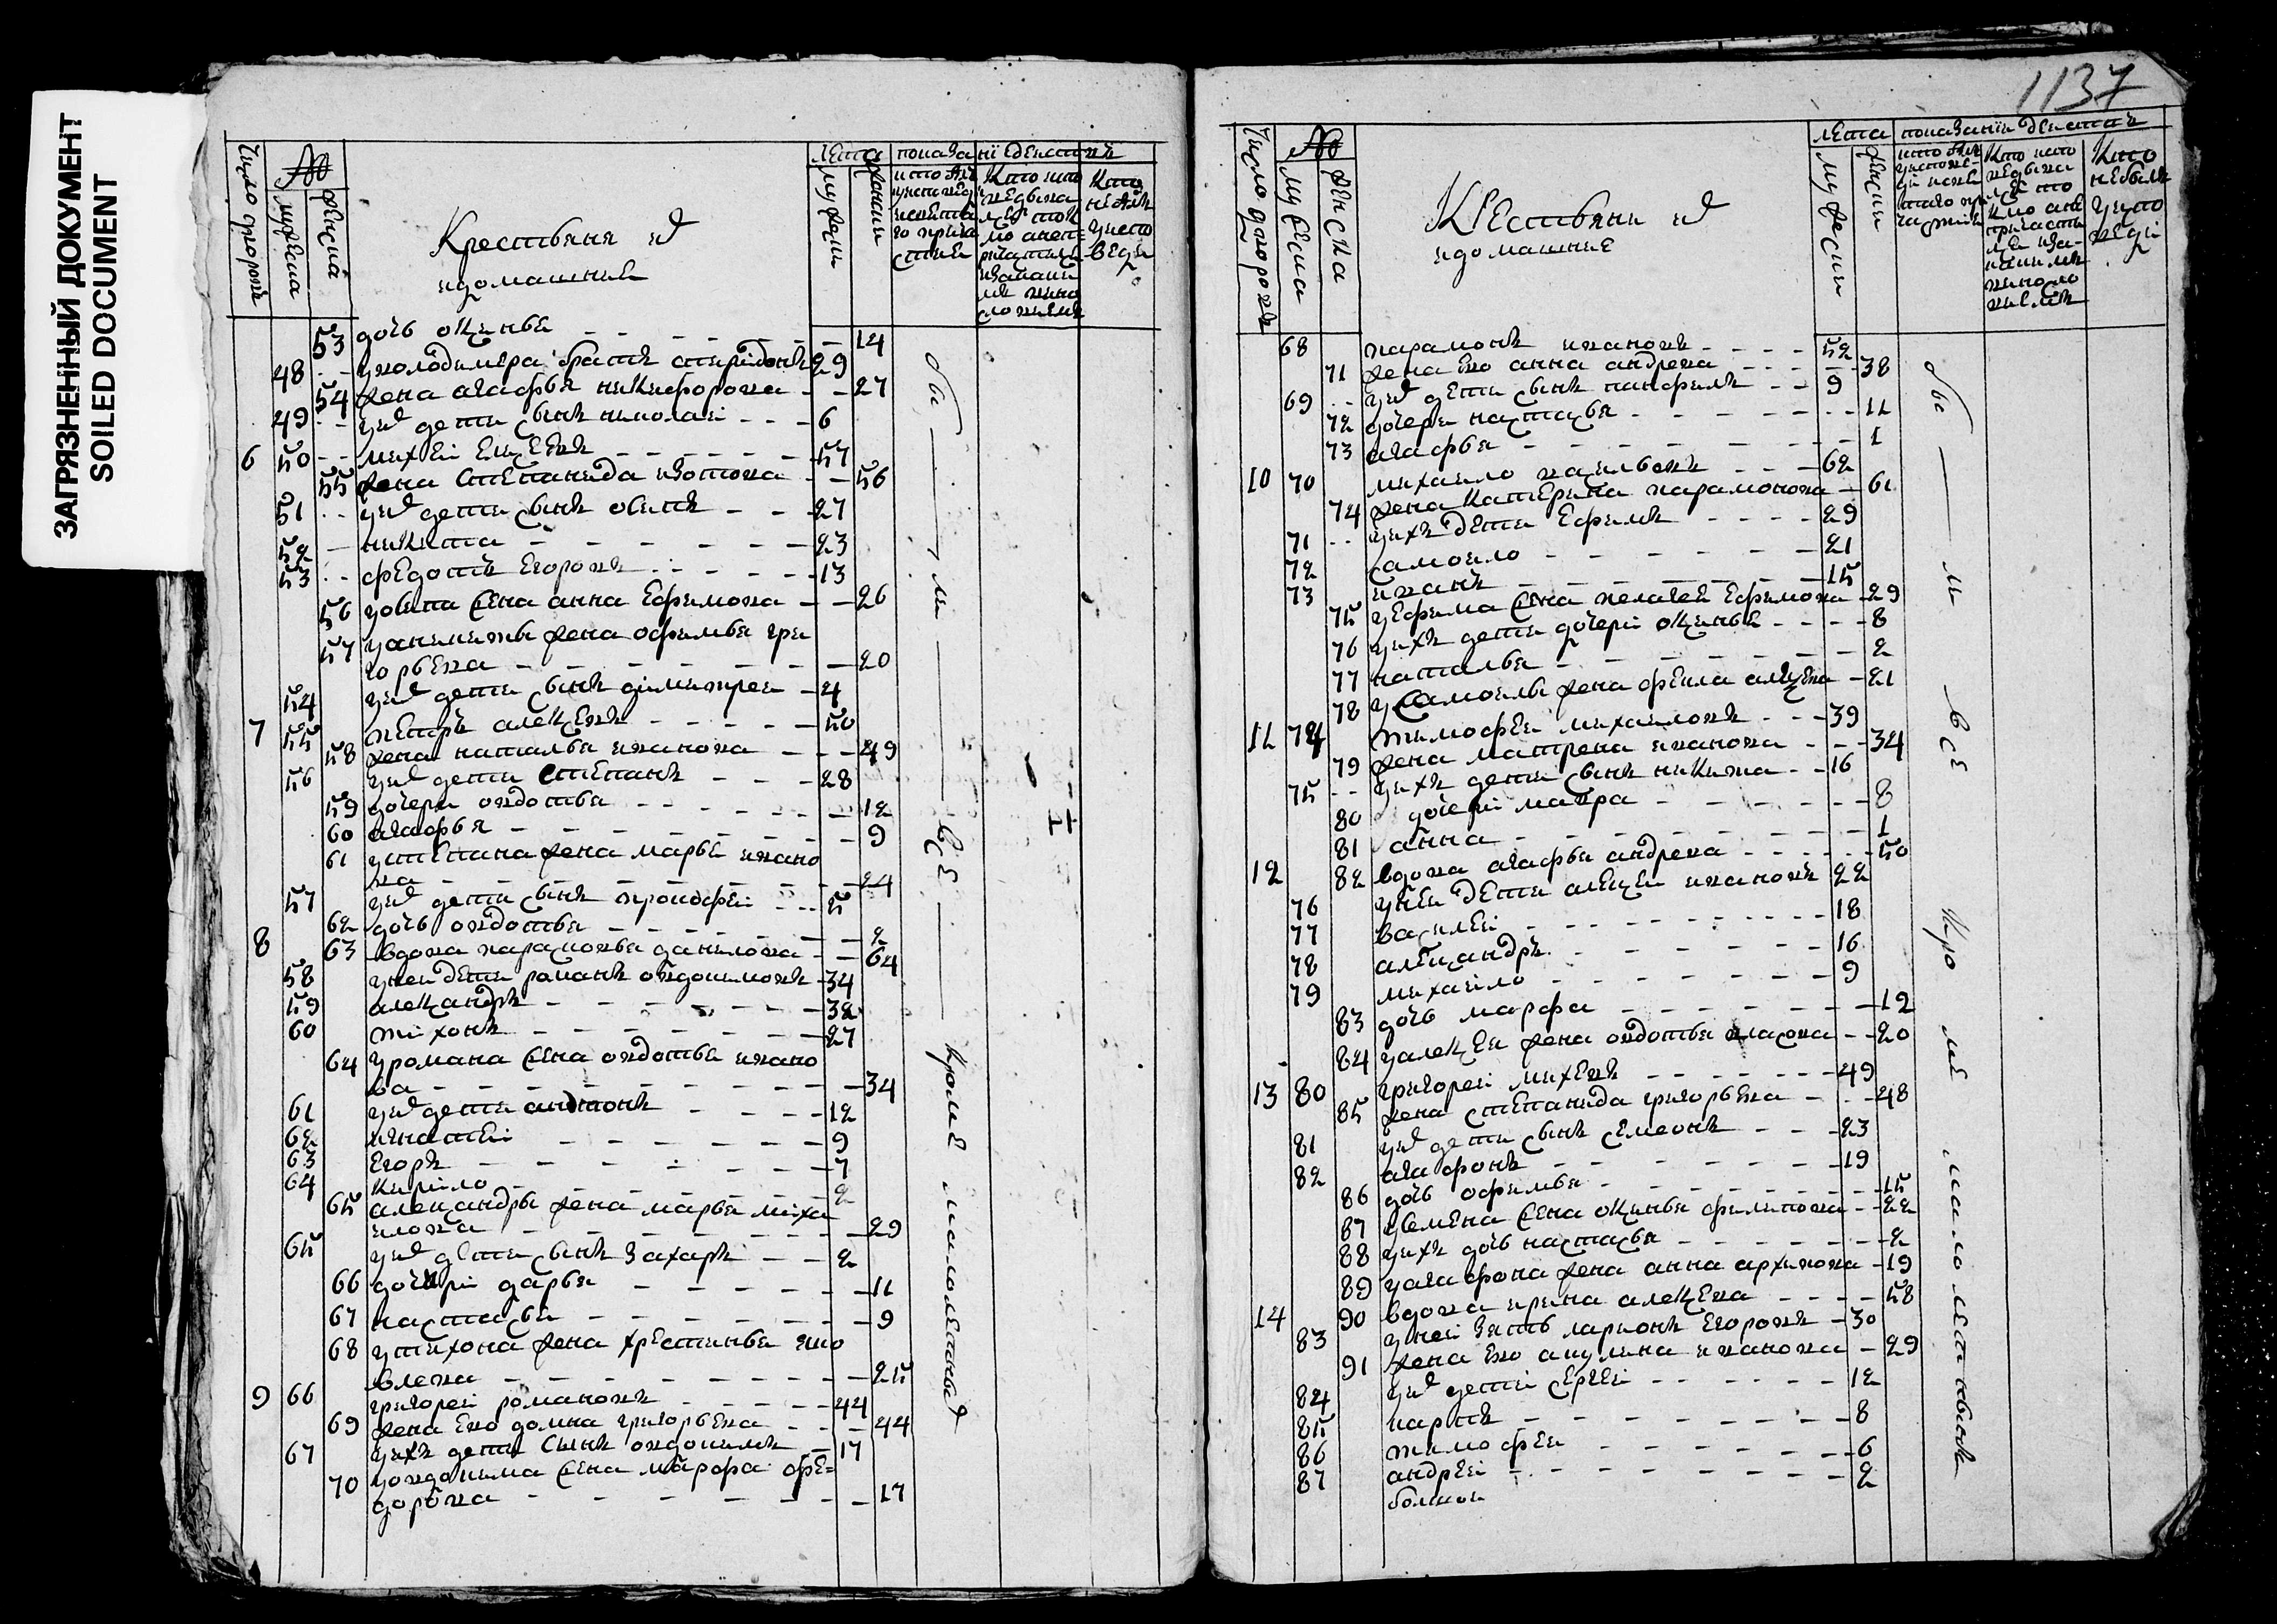 ЗАГРЯЗНЕННЫЙ ДОКУМЕНТ
SOILED DOCUMENT
1137
число дворовъ
№
мужеска
женска
Крестьяня и
и домашния
лета
мужеии
женски
показание действъ
53 дочь оксинья 14
48 у володимера братъ спиридонъ 29
54 жена агафья никифорова 27
49 у них дети сынъ николаи 6
6 50 михеи 57
55 жена степанида изотова 56
51 у них дети сынъ осипъ 27
52 никита 23
53 федотъ егоровъ 13
56 у осипа жена анна ефимова 26
57 у аникиты жена офимья гри
горьева 20
54 у них дети сынъ димитреи 4
7 55 петръ алексеевъ 50
58 жена наталья иванова 49
56 у них дети степанъ 28
59 дочери овдотья 12
60 агафья 9
61 у степана жена марья ивано
ва 24
57 у них дети сынъ прокофеи 5
62 дочь овдотья 2
8 63 вдова парасковья данилова 64
58 у неи дети романъ овдокимовъ 34
59 александръ 32
60 тихонъ 27
64 у романа жена овдотья ивано
ва 34
61 у них дети антонъ 12
62 игнатеи 9
63 егоръ 7
64 кирило 2
65 александры жена марья миха
илова 29
65 у них дети сынъ захаръ 2
66 дочери дарья 11
67 настасья 9
68 у тихона жена хрестинья яко
влева 25
9 66 григореи романовъ 44
69 жена ево домна григорьева 44
67 у ихъ дети сынъ овдокимъ 17
70 у овдокима жена марфа фе=
дорова 17
бы ли все кроме малолетныхъ
число дворовъ
№
мужеска
женска
Крестьяня и
и домашние
лета
мужески
женски
показание действъ
68 парамонъ ивановъ 52
71 жена ево анна андреева 38
69 у них дети сынъ панфилъ 9
72 дочери настасья 11
73 агафья 1
10 70 михаило васильевъ 62
74 жена катерина парамонова 61
71 у ихъ дети ефимъ 29
72 самоило 21
73 иванъ 15
75 у ефима жена пелагея ефимова 29
76 у ихъ дети дочери оксинья 8
77 наталья 2
78 у самоилы жена фекла алексеева 21
11 74 тимофеи михаиловъ 39
79 жена матрена иванова 34
75 у ихъ дети сынъ никита 16
80 дочери мавра 8
81 анна 1
12 82 вдова агафья андреева 50
76 у неи дети алексеи ивановъ 22
77 василеи 18
78 александръ 16
79 михаило 9
83 дочь марфа 12
84 у алексея жена овдотья власова 20
13 80 григореи михеевъ 49
85 жена степанида григорьева 48
81 у них дети сынъ семеонъ 23
82 агафонъ 19
86 дочь офимья 15
87 у семена жена оксинья филипова 22
88 у ихъ дочь настасья 2
89 у агафона жена анна архипова 19
14 90 вдова ирина алексеева 58
83 у неи зять ларионъ егоровъ 30
91 жена ево акулина иванова 29
84 у них дети сергеи 12
85 карпъ 8
86 тимофеи 6
87 андреи 2
болшои
бы ли все кроме малолетныхъ